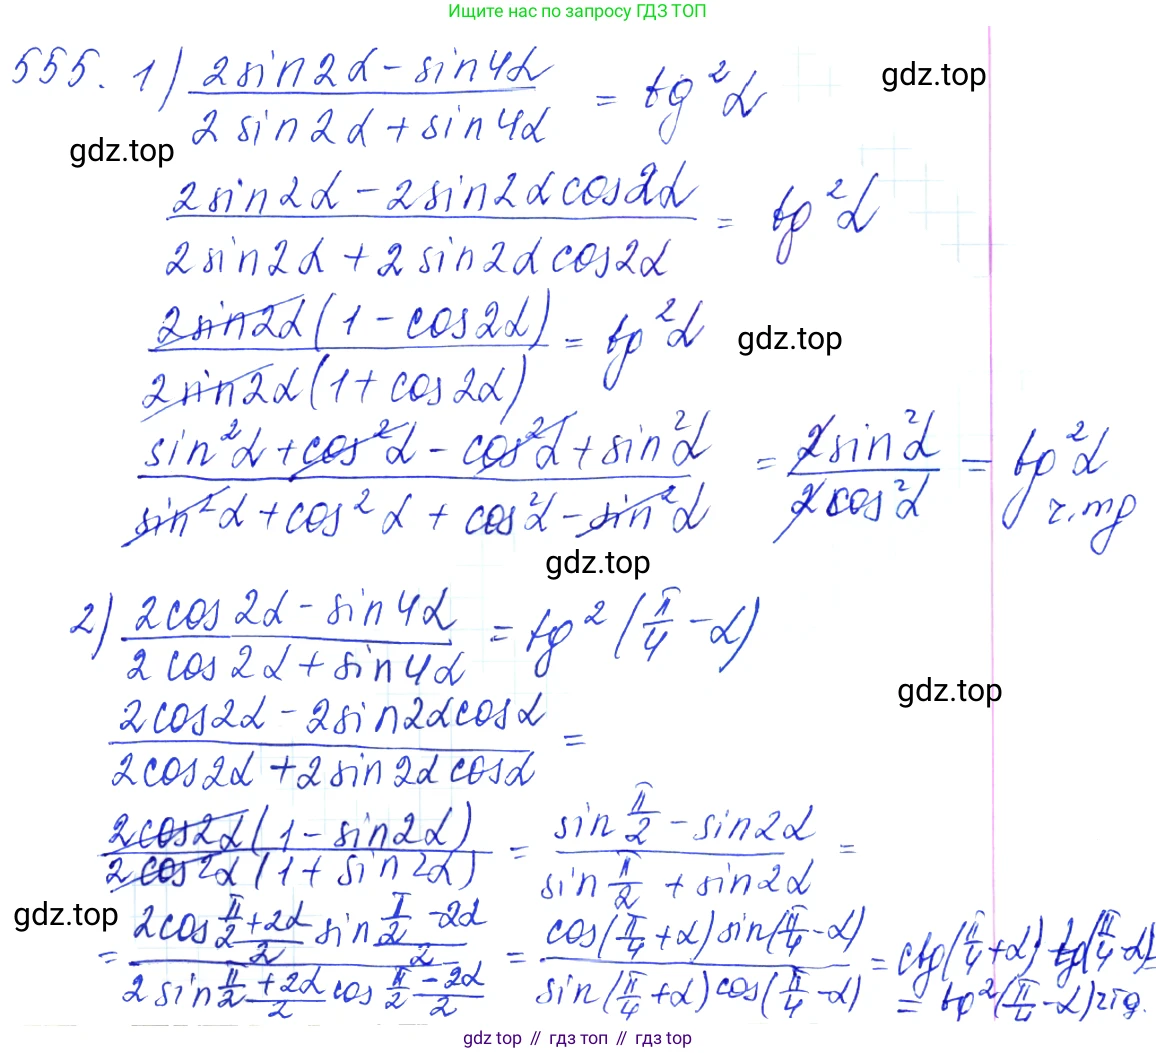 Ищите нас по запросу ГДЗ ТОП
555. 1) (2sin2α - sin4α)/(2sin2α + sin4α) = tg²α
gdz.top
gdz.top
(2sin2α - 2sin2αcos2α)/(2sin2α + 2sin2αcos2α) = tg²α
(2sin2α(1 - cos2α))/(2sin2α(1 + cos2α)) = tg²α
gdz.top
(sin²α + cos²α - cos²α + sin²α)/(sin²α + cos²α + cos²α - sin²α) = 2sin²α/2cos²α = tg²α
ч.тд
gdz.top
2) (2cos2α - sin4α)/(2cos2α + sin4α) = tg²(π/4 - α)
gdz.top
(2cos2α - 2sin2αcosα)/(2cos2α + 2sin2αcosα) =
(2cos2α(1 - sin2α))/(2cos2α(1 + sin2α)) = (sin π/2 - sin2α)/(sin π/2 + sin2α) =
gdz.top
= (2cos (π/2 + 2α)/2 sin (π/2 - 2α)/2)/(2sin (π/2 + 2α)/2 cos (π/2 - 2α)/2) = (cos(π/4 + α)sin(π/4 - α))/(sin(π/4 + α)cos(π/4 - α)) = ctg(π/4 + α) tg(π/4 - α) =
= tg²(π/4 - α) чтд.
gdz.top // гдз топ // гдз top